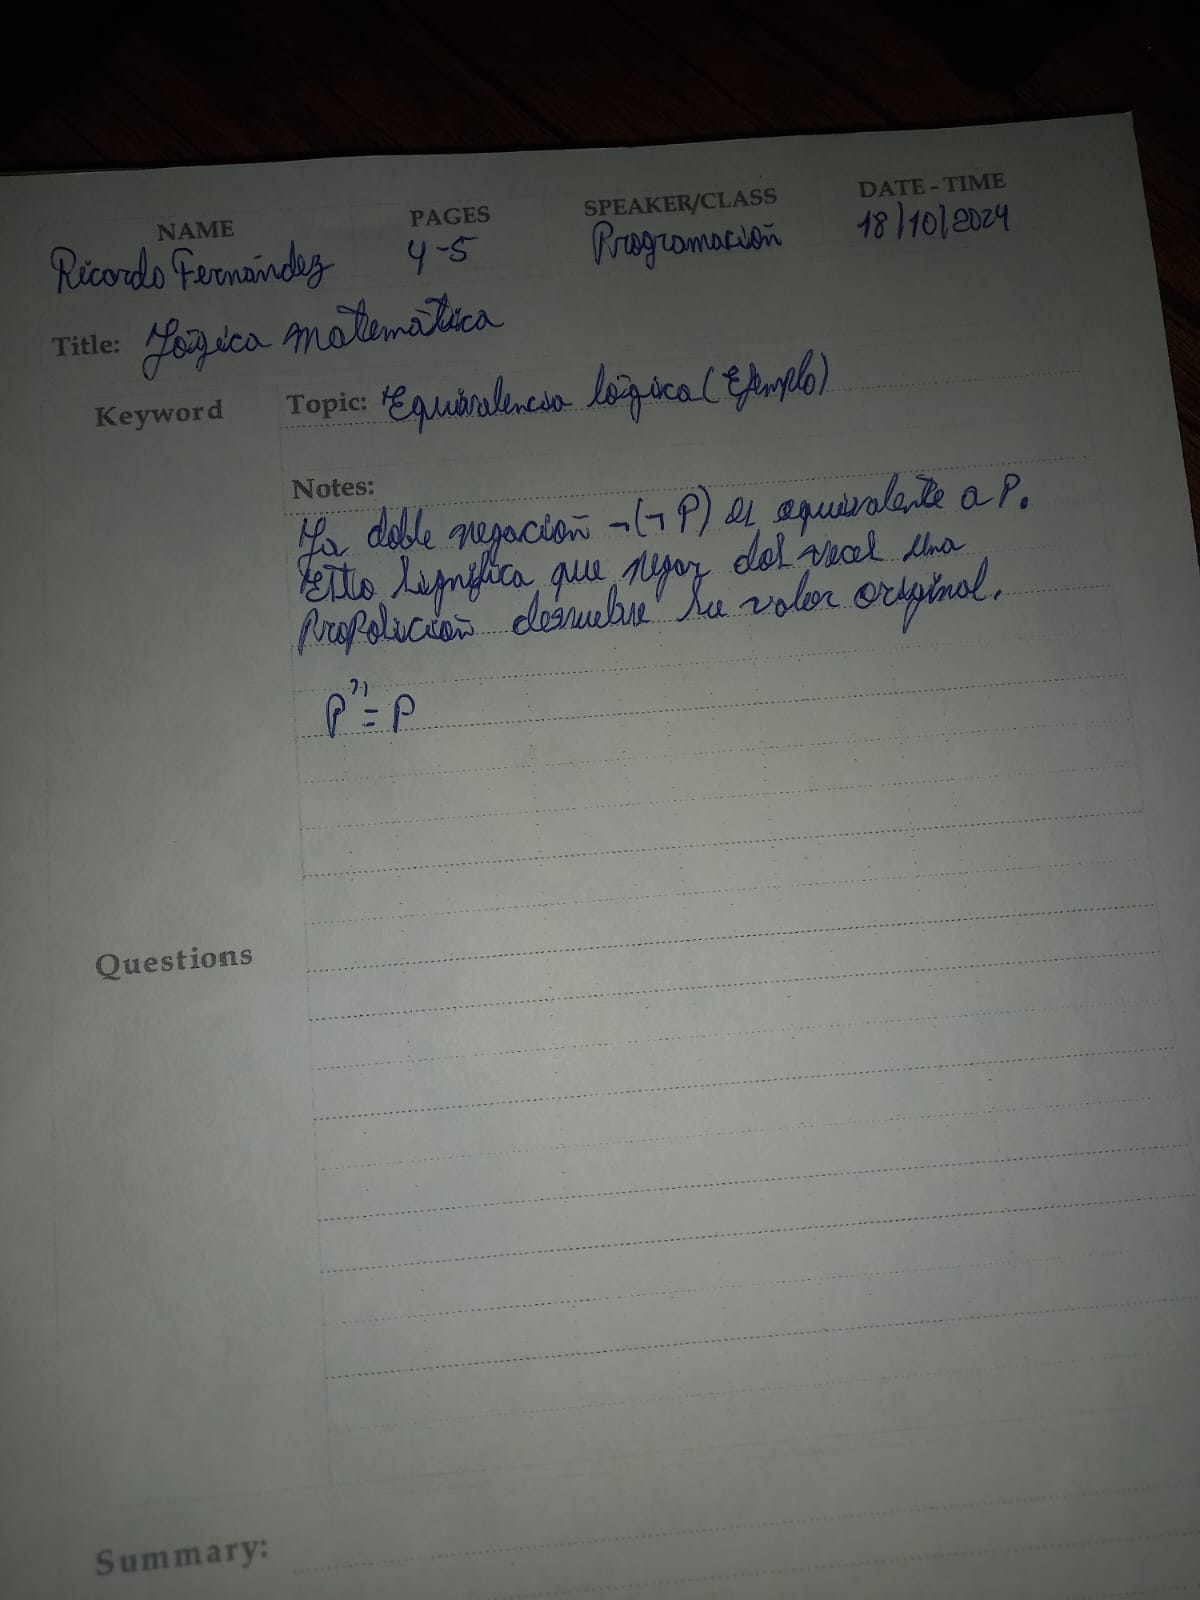 NAME PAGES SPEAKER/CLASS DATE - TIME
Ricardo Fernández 4-5 Programación 18/10/2024
Title: Lógica matemática
Keyword
Topic: Equivalencia lógica (Ejemplo)
Notes:
La doble negación ¬(¬ P) es equivalente a P.
Esto significa que negar dos veces una
Proposición devuelve su valor original.
P'' = P
Questions
Summary: